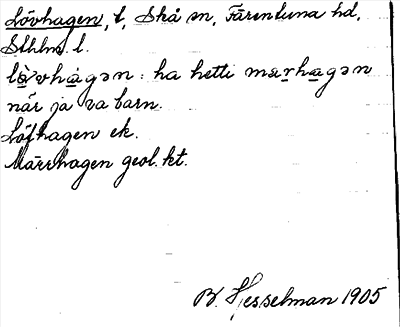 Lövhagen, t, Skå sn, Färentuna hd,
Sthlms l.
lȯ̀vhágən: ha hetti mærhagən
när ja va barn.
Löfhagen ek.
Märrhagen geol. kt.
B. Hesselman 1905